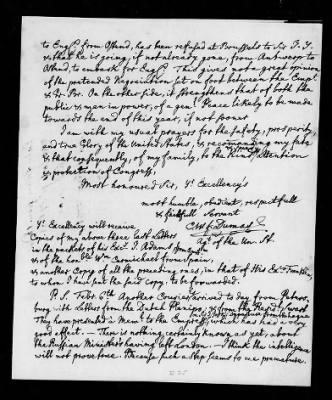 to Engld from Ostend, has been refused at Brussels to Sir J. Y.
& that he is going, if not already gone, from Antwerp to
Ostend, to embark for Engld. This gives not a great opinion
of the pretended Negociation set on foot between the Empr.
& Gr. Br. On the other side, it strengthens that of both the
public & men in power, of a genl. Peace likely to be made
towards the end of this year, if not sooner
I am with my usual prayers for the safety, prosperity,
and true Glory of the United States, & recommending my fate
& that consequently, of my family, to the kind attention
& protection of Congress,
Most honoured Sir, Yr. Excellency's
most humble, obedient, respectfull
& faithfull Servant
C. W. F. Dumas
Agt. of the Un. St.
Yr. Excellency will receive
Copies of my above three last Letters
in the packets of his Exc. J. Adams
& of the honble. Wm. Carmichael from Spain,
& another Copy of all the preceding ones, in that of His Exc. Franklin,
to whom I have sent the said copy, to be forwarded.
P. S. Febr. 6th Another Courier arrived to day from Peters-
burg with Letters from the Dutch Plenipos.
They have presented a Meml. to the Empress, which has had a very
good effect. — There is nothing certainly known as yet, about
the Russian Ministers having left London. I think the intelligence
will not prove true. Because such a Step seems to me premature.